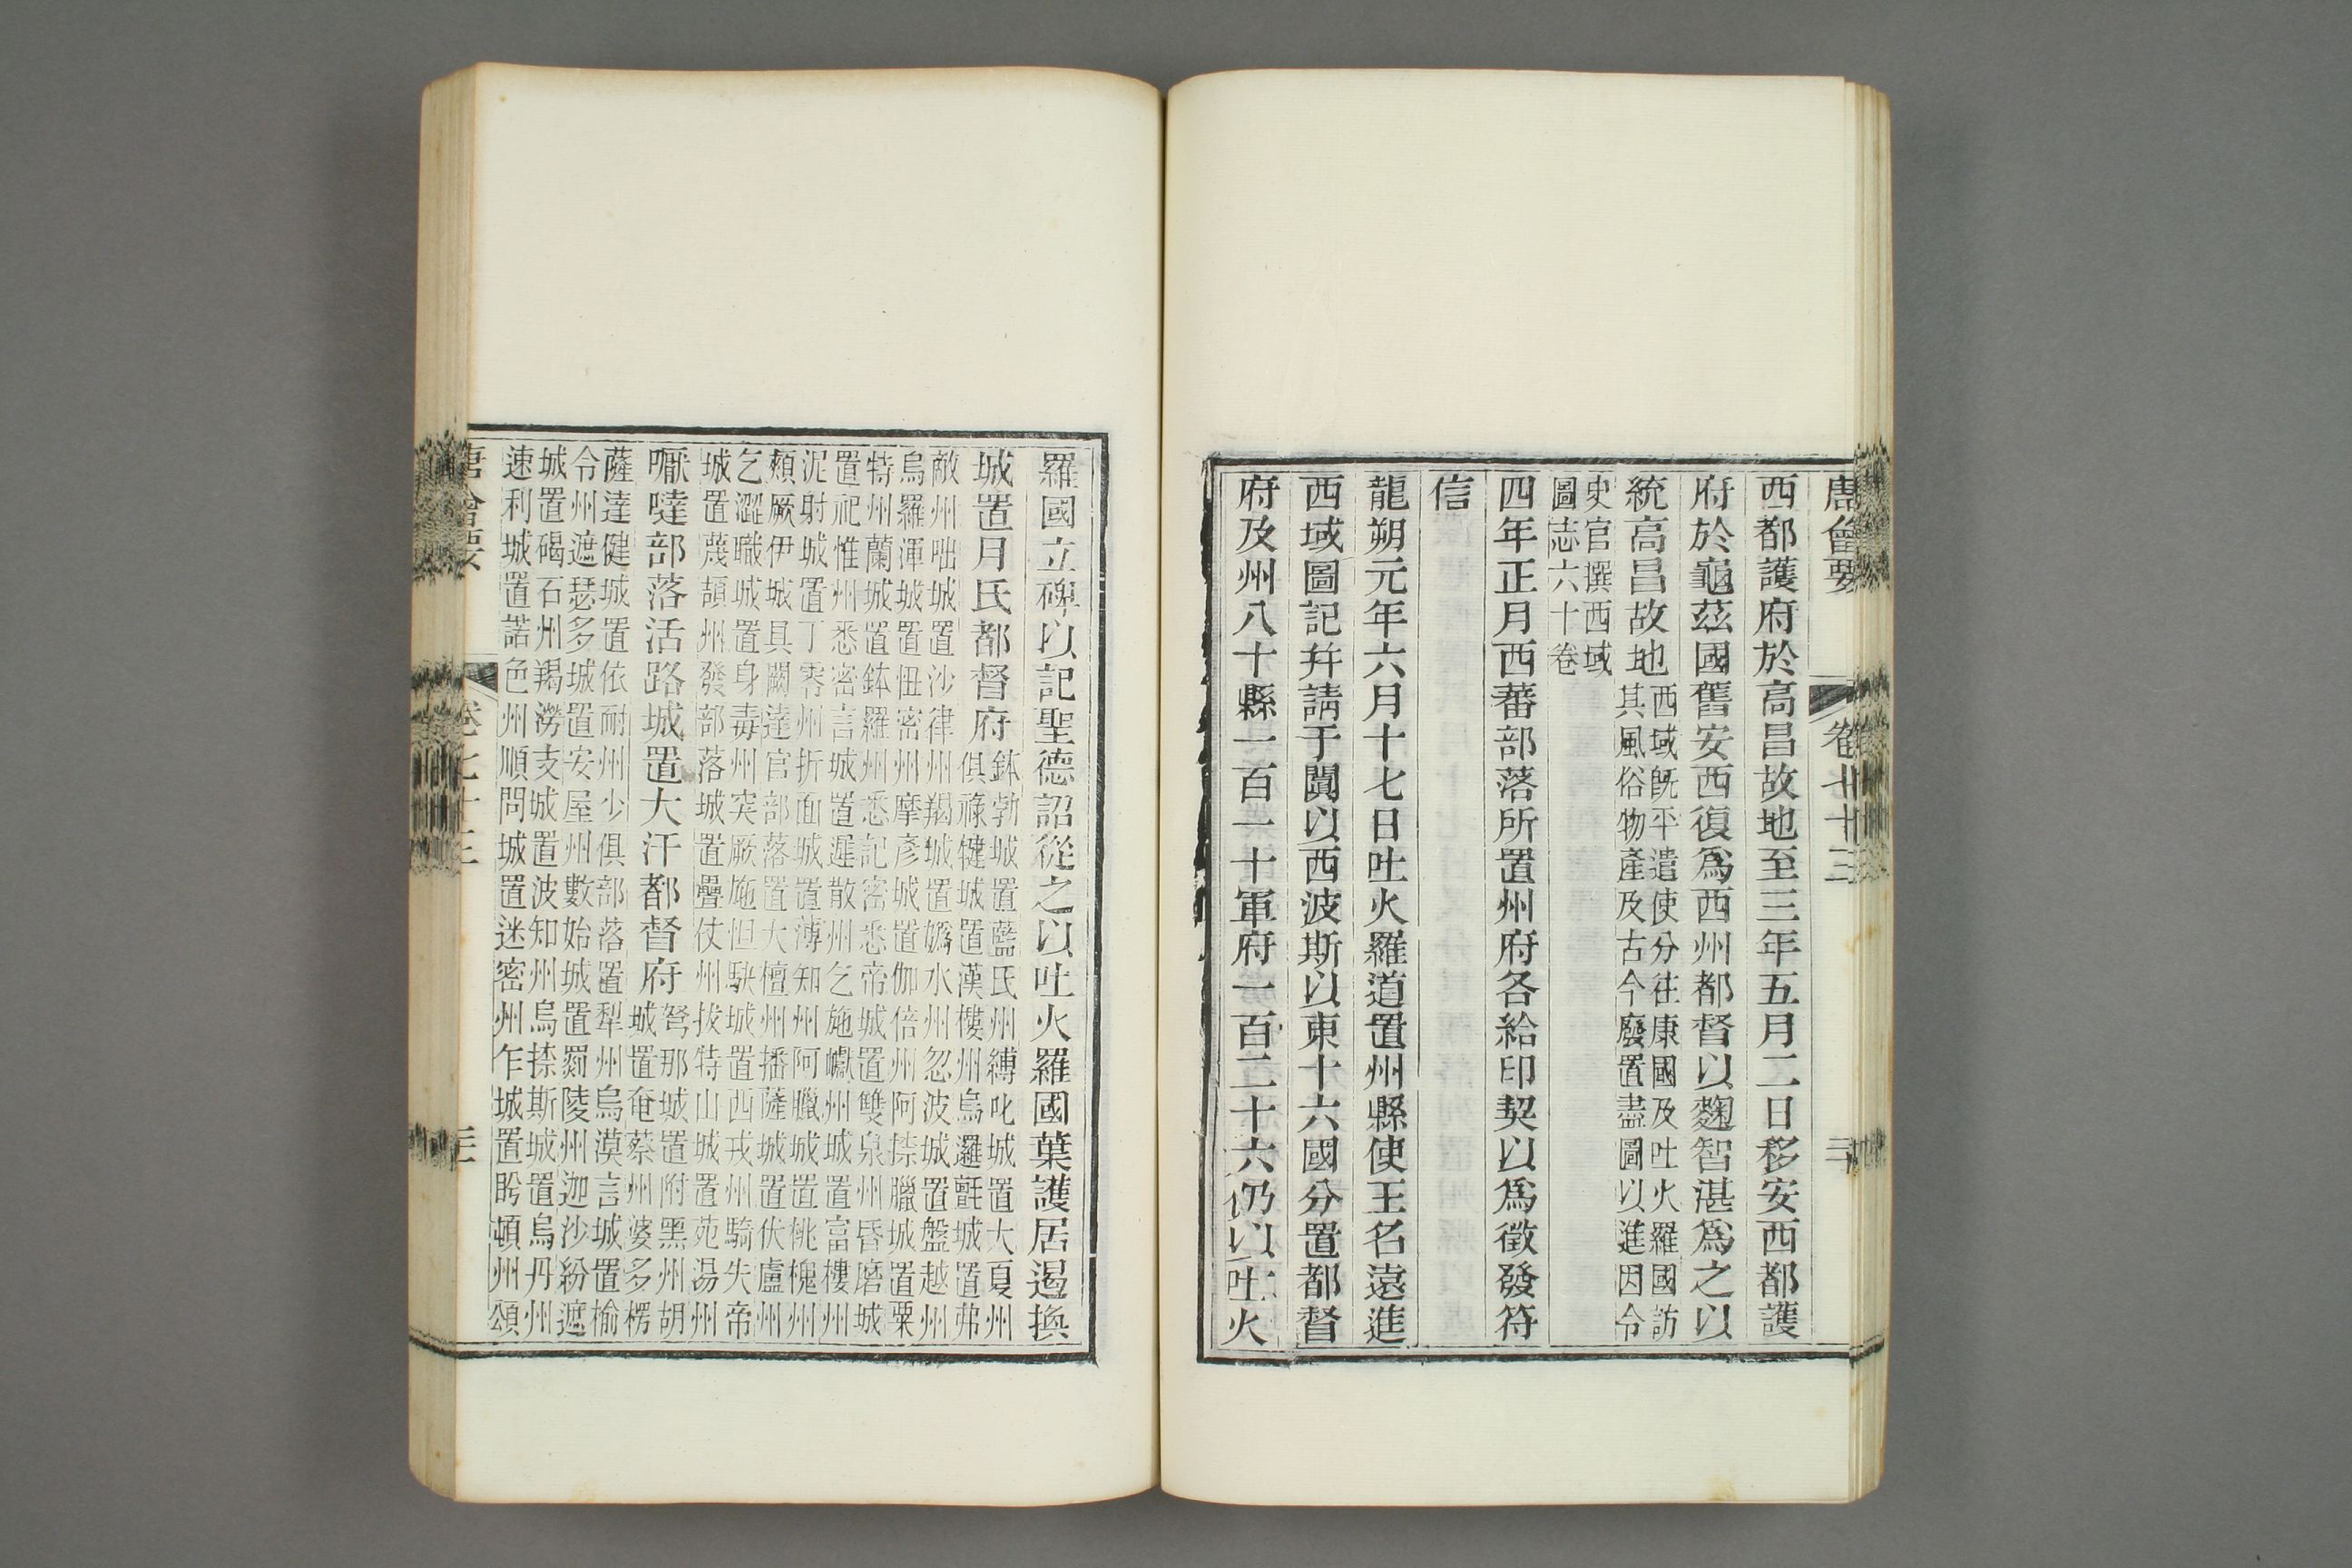 唐會要 卷七十三
西都護府於高昌故地至三年五月二日移安西都護
府於龜茲國舊安西復爲西州都督以麴智湛爲之以
統高昌故地 西域旣平遣使分往康國及吐火羅國訪
其風俗物產及古今廢置盡圖以進因令
史官撰西域
圖志六十卷
四年正月西蕃部落所置州府各給印契以爲徵發符
信
龍朔元年六月十七日吐火羅道置州縣使王名遠進
西域圖記并請于闐以西波斯以東十六國分置都督
府及州八十縣一百一十軍府一百二十六仍以吐火
羅國立碑以記聖德詔從之以吐火羅國葉護居遏換
城置月氏都督府 鉢勃城置藍氏州縛叱城置大夏州
俱祿犍城置漢樓州烏邏氈城置弗
敵州咄城置沙律州羯城置嬀水州忽波城置盤越州
烏羅渾城置忸密州摩彥城置伽倍州阿捺臘城置粟
特州蘭城置鉢羅州悉記密悉帝城置雙泉州昏磨城
置祀惟州悉密言城置遲散州乞施巘州城置富樓州
泥射城置丁零州折面城置薄知州阿臘城置桃槐州
頰厥伊城具闕達官部落置大檀州播薩城置伏盧州
乞澀職城置身毒州突厥施怛駃城置西戎州騎失帝
城置蔑頡州發部落城置疊仗州拔特山城置苑湯州
嚈噠部落活路城置大汗都督府 弩那城置附黑州胡
城置奄蔡州婆多楞
薩達健城置依耐州少俱部落置犁州烏漠言城置榆
令州遮瑟多城置安屋州數始城置罽陵州迦沙紛遮
城置碣石州羯澇支城置波知州烏捺斯城置烏丹州
速利城置諾色州順問城置迷密州乍城置盻頓州頌
唐會要 卷七十三